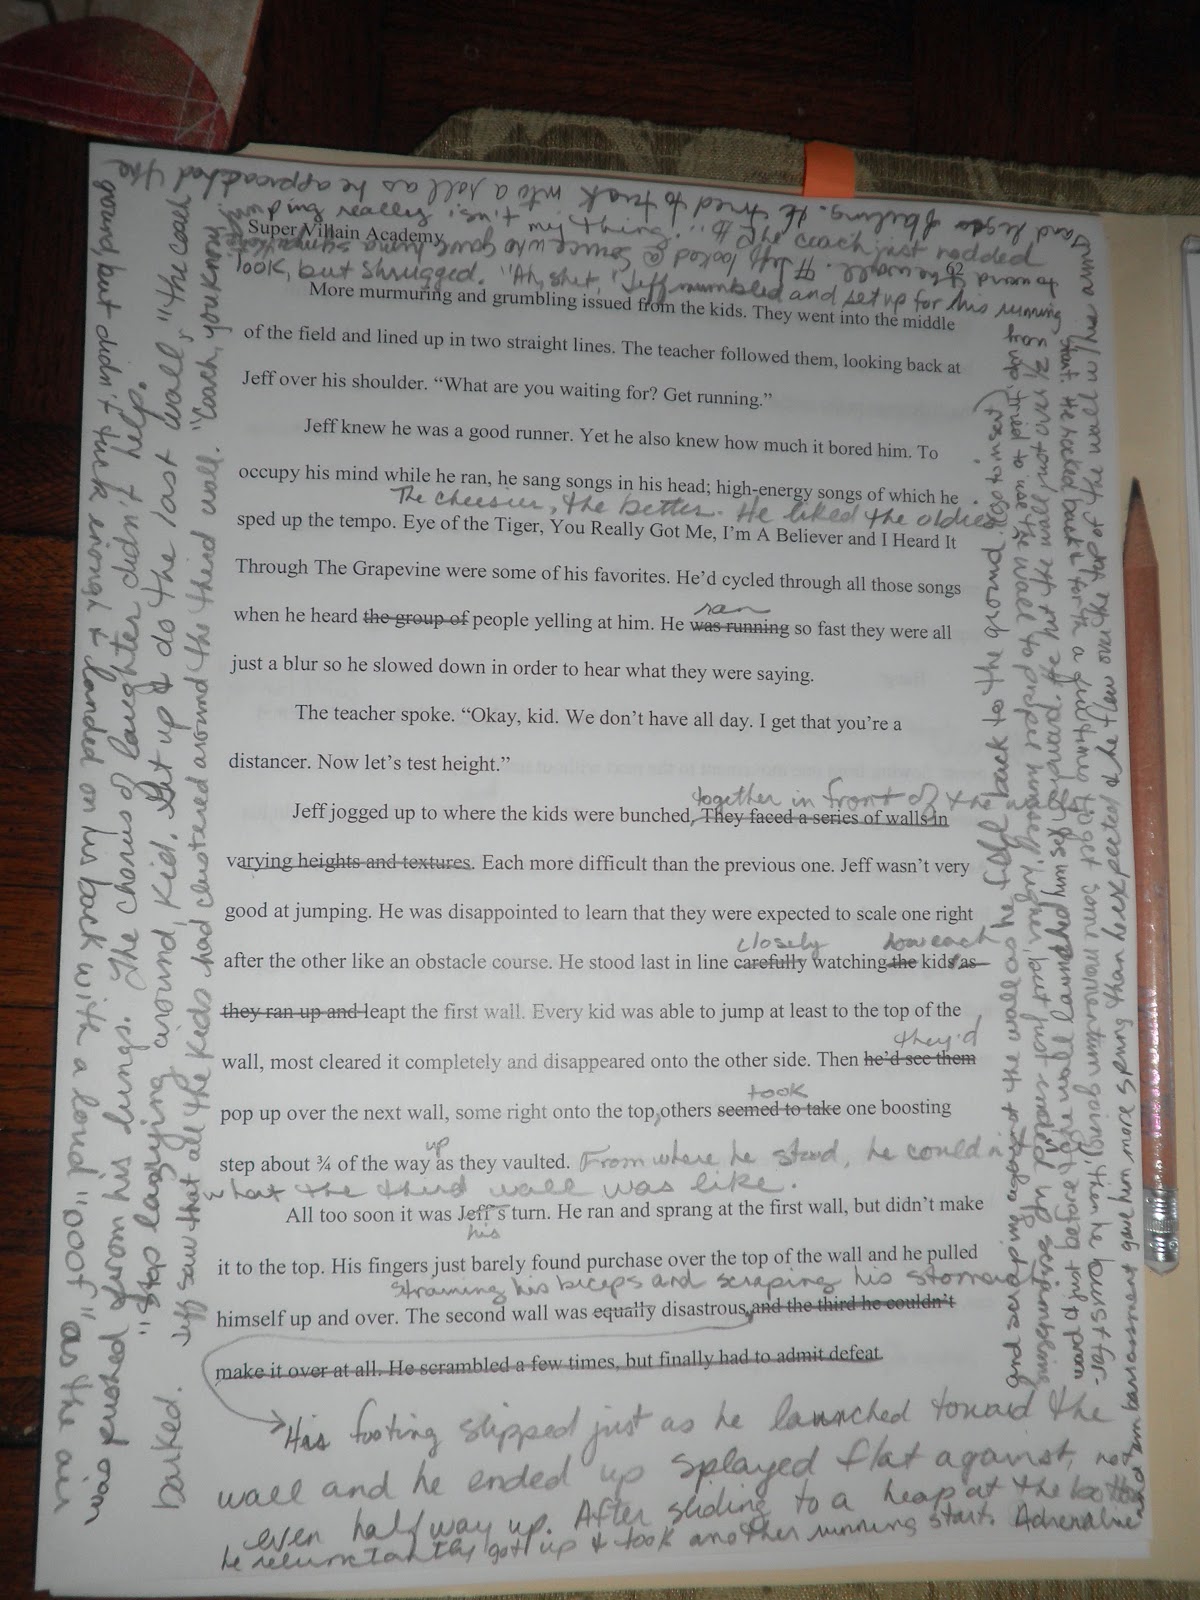 Super Villain Academy
62
More murmuring and grumbling issued from the kids. They went into the middle
of the field and lined up in two straight lines. The teacher followed them, looking back at
Jeff over his shoulder. “What are you waiting for? Get running.”
Jeff knew he was a good runner. Yet he also knew how much it bored him. To
occupy his mind while he ran, he sang songs in his head; high-energy songs of which he
The cheesier, the better. He liked the oldies.
sped up the tempo. Eye of the Tiger, You Really Got Me, I’m A Believer and I Heard It
Through The Grapevine were some of his favorites. He’d cycled through all those songs
ran
when he heard the group of people yelling at him. He was running so fast they were all
just a blur so he slowed down in order to hear what they were saying.
The teacher spoke. “Okay, kid. We don’t have all day. I get that you’re a
distancer. Now let’s test height.”
together in front of the walls
Jeff jogged up to where the kids were bunched, They faced a series of walls in
varying heights and textures. Each more difficult than the previous one. Jeff wasn’t very
good at jumping. He was disappointed to learn that they were expected to scale one right
closely how each
after the other like an obstacle course. He stood last in line carefully watching the kids as
they ran up and leapt the first wall. Every kid was able to jump at least to the top of the
they'd
wall, most cleared it completely and disappeared onto the other side. Then he’d see them
took
pop up over the next wall, some right onto the top, others seemed to take one boosting
up
step about ¾ of the way as they vaulted. From where he stood, he couldn't
what the third wall was like.
All too soon it was Jeff’s turn. He ran and sprang at the first wall, but didn’t make
his
it to the top. His fingers just barely found purchase over the top of the wall and he pulled
straining his biceps and scraping his stomach
himself up and over. The second wall was equally disastrous, and the third he couldn’t
make it over at all. He scrambled a few times, but finally had to admit defeat.
His footing slipped just as he launched toward the
wall and he ended up splayed flat against, not
even half way up. After sliding to a heap at the bottom
he reluctantly got up & took another running start. Adrenaline
and embarrassment gave him more spring than he expected & he flew over the top of the wall
and scraping against the wall as he fell back to the ground.
and legs flailing. He tried to tuck into a roll as he approached the
ground, but didn't tuck enough & landed on his back with a loud "ooof" as the air
was pushed from his lungs. The chorus of laughter didn't help.
"Stop lazying around, Kid. Get up & do the last wall," the coach
barked. Jeff saw that all the kids had clustered around the third wall. "Coach, you know,
jumping really isn't my thing..." The coach just nodded
toward the wall. Jeff looked @ Source who gave him a
look, but shrugged. "Ah, shit," Jeff mumbled and set up for his running
start. He rocked back & forth a few times to get some momentum going, then he burst for-
ward & just before the wall launched himself